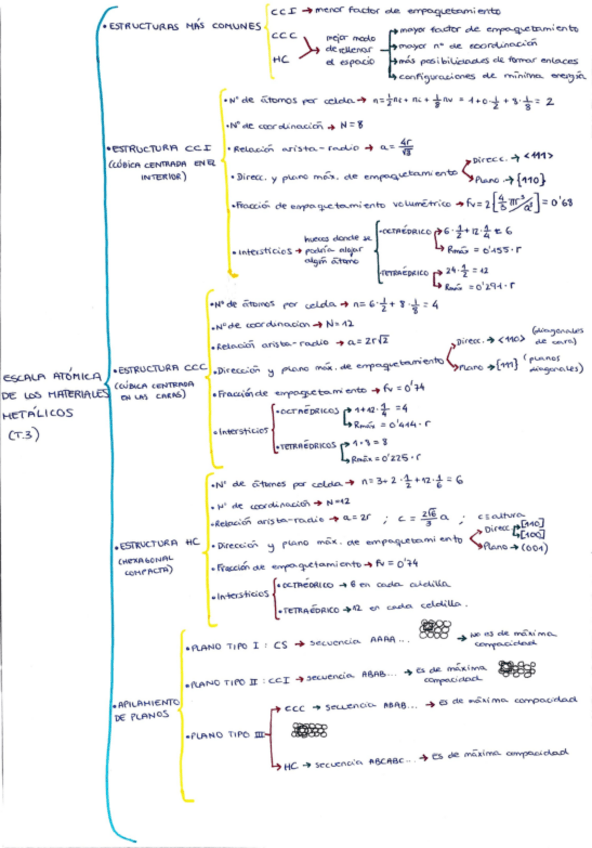 ESCALA ATÓMICA
DE LOS MATERIALES
METÁLICOS
(T.3)
• ESTRUCTURAS MÁS COMUNES
CCI → menor factor de empaquetamiento
CCC
HC
mejor modo
de rellenar
el espacio
→ mayor factor de empaquetamiento
→ mayor nº de coordinación
→ más posibilidades de formar enlaces
→ configuraciones de mínima energía
• ESTRUCTURA CCI
(CÚBICA CENTRADA EN EL
INTERIOR)
• Nº de átomos por celda → n = 1/2 nc + ni + 1/8 nv = 1 + 0 · 1/2 + 8 · 1/8 = 2
• Nº de coordinación → N = 8
• Relación arista-radio → a = 4r/√3
• Direcc. y plano máx. de empaquetamiento
Direcc. → <111>
Plano → {110}
• Fracción de empaquetamiento volumétrico → fv = 2 [4/3 πr³/a³] = 0'68
• Intersticios →
huecos donde se
podría alojar
algún átomo
• OCTAÉDRICO → 6 · 1/2 + 12 · 1/4 = 6
→ Rmáx = 0'155 · r
• TETRAÉDRICO → 24 · 1/2 = 12
→ Rmáx = 0'291 · r
• ESTRUCTURA CCC
(CÚBICA CENTRADA
EN LAS CARAS)
• Nº de átomos por celda → n = 6 · 1/2 + 8 · 1/8 = 4
• Nº de coordinación → N = 12
• Relación arista-radio → a = 2r√2
• Dirección y plano máx. de empaquetamiento
Direcc. → <110> (diagonales de cara)
Plano → {111} (planos diagonales)
• Fracción de empaquetamiento → fv = 0'74
• Intersticios
• OCTAÉDRICOS → 1 + 12 · 1/4 = 4
→ Rmáx = 0'414 · r
• TETRAÉDRICOS → 1 · 8 = 8
→ Rmáx = 0'225 · r
• ESTRUCTURA HC
(HEXAGONAL
COMPACTA)
• Nº de átomos por celda → n = 3 + 2 · 1/2 + 12 · 1/6 = 6
• Nº de coordinación → N = 12
• Relación arista-radio → a = 2r ; c = 2√6/3 a ; c = altura
• Dirección y plano máx. de empaquetamiento
Direcc → [110]
→ [100]
Plano → (001)
• Fracción de empaquetamiento → fv = 0'74
• Intersticios
• OCTAÉDRICO → 6 en cada celdilla
• TETRAÉDRICO → 12 en cada celdilla.
• APILAMIENTO
DE PLANOS
• PLANO TIPO I : CS → secuencia AAAA... → no es de máxima
compacidad
• PLANO TIPO II : CCI → secuencia ABAB... → es de máxima
compacidad
• PLANO TIPO III
→ CCC → secuencia ABAB... → es de máxima compacidad
→ HC → secuencia ABCABC... → es de máxima compacidad